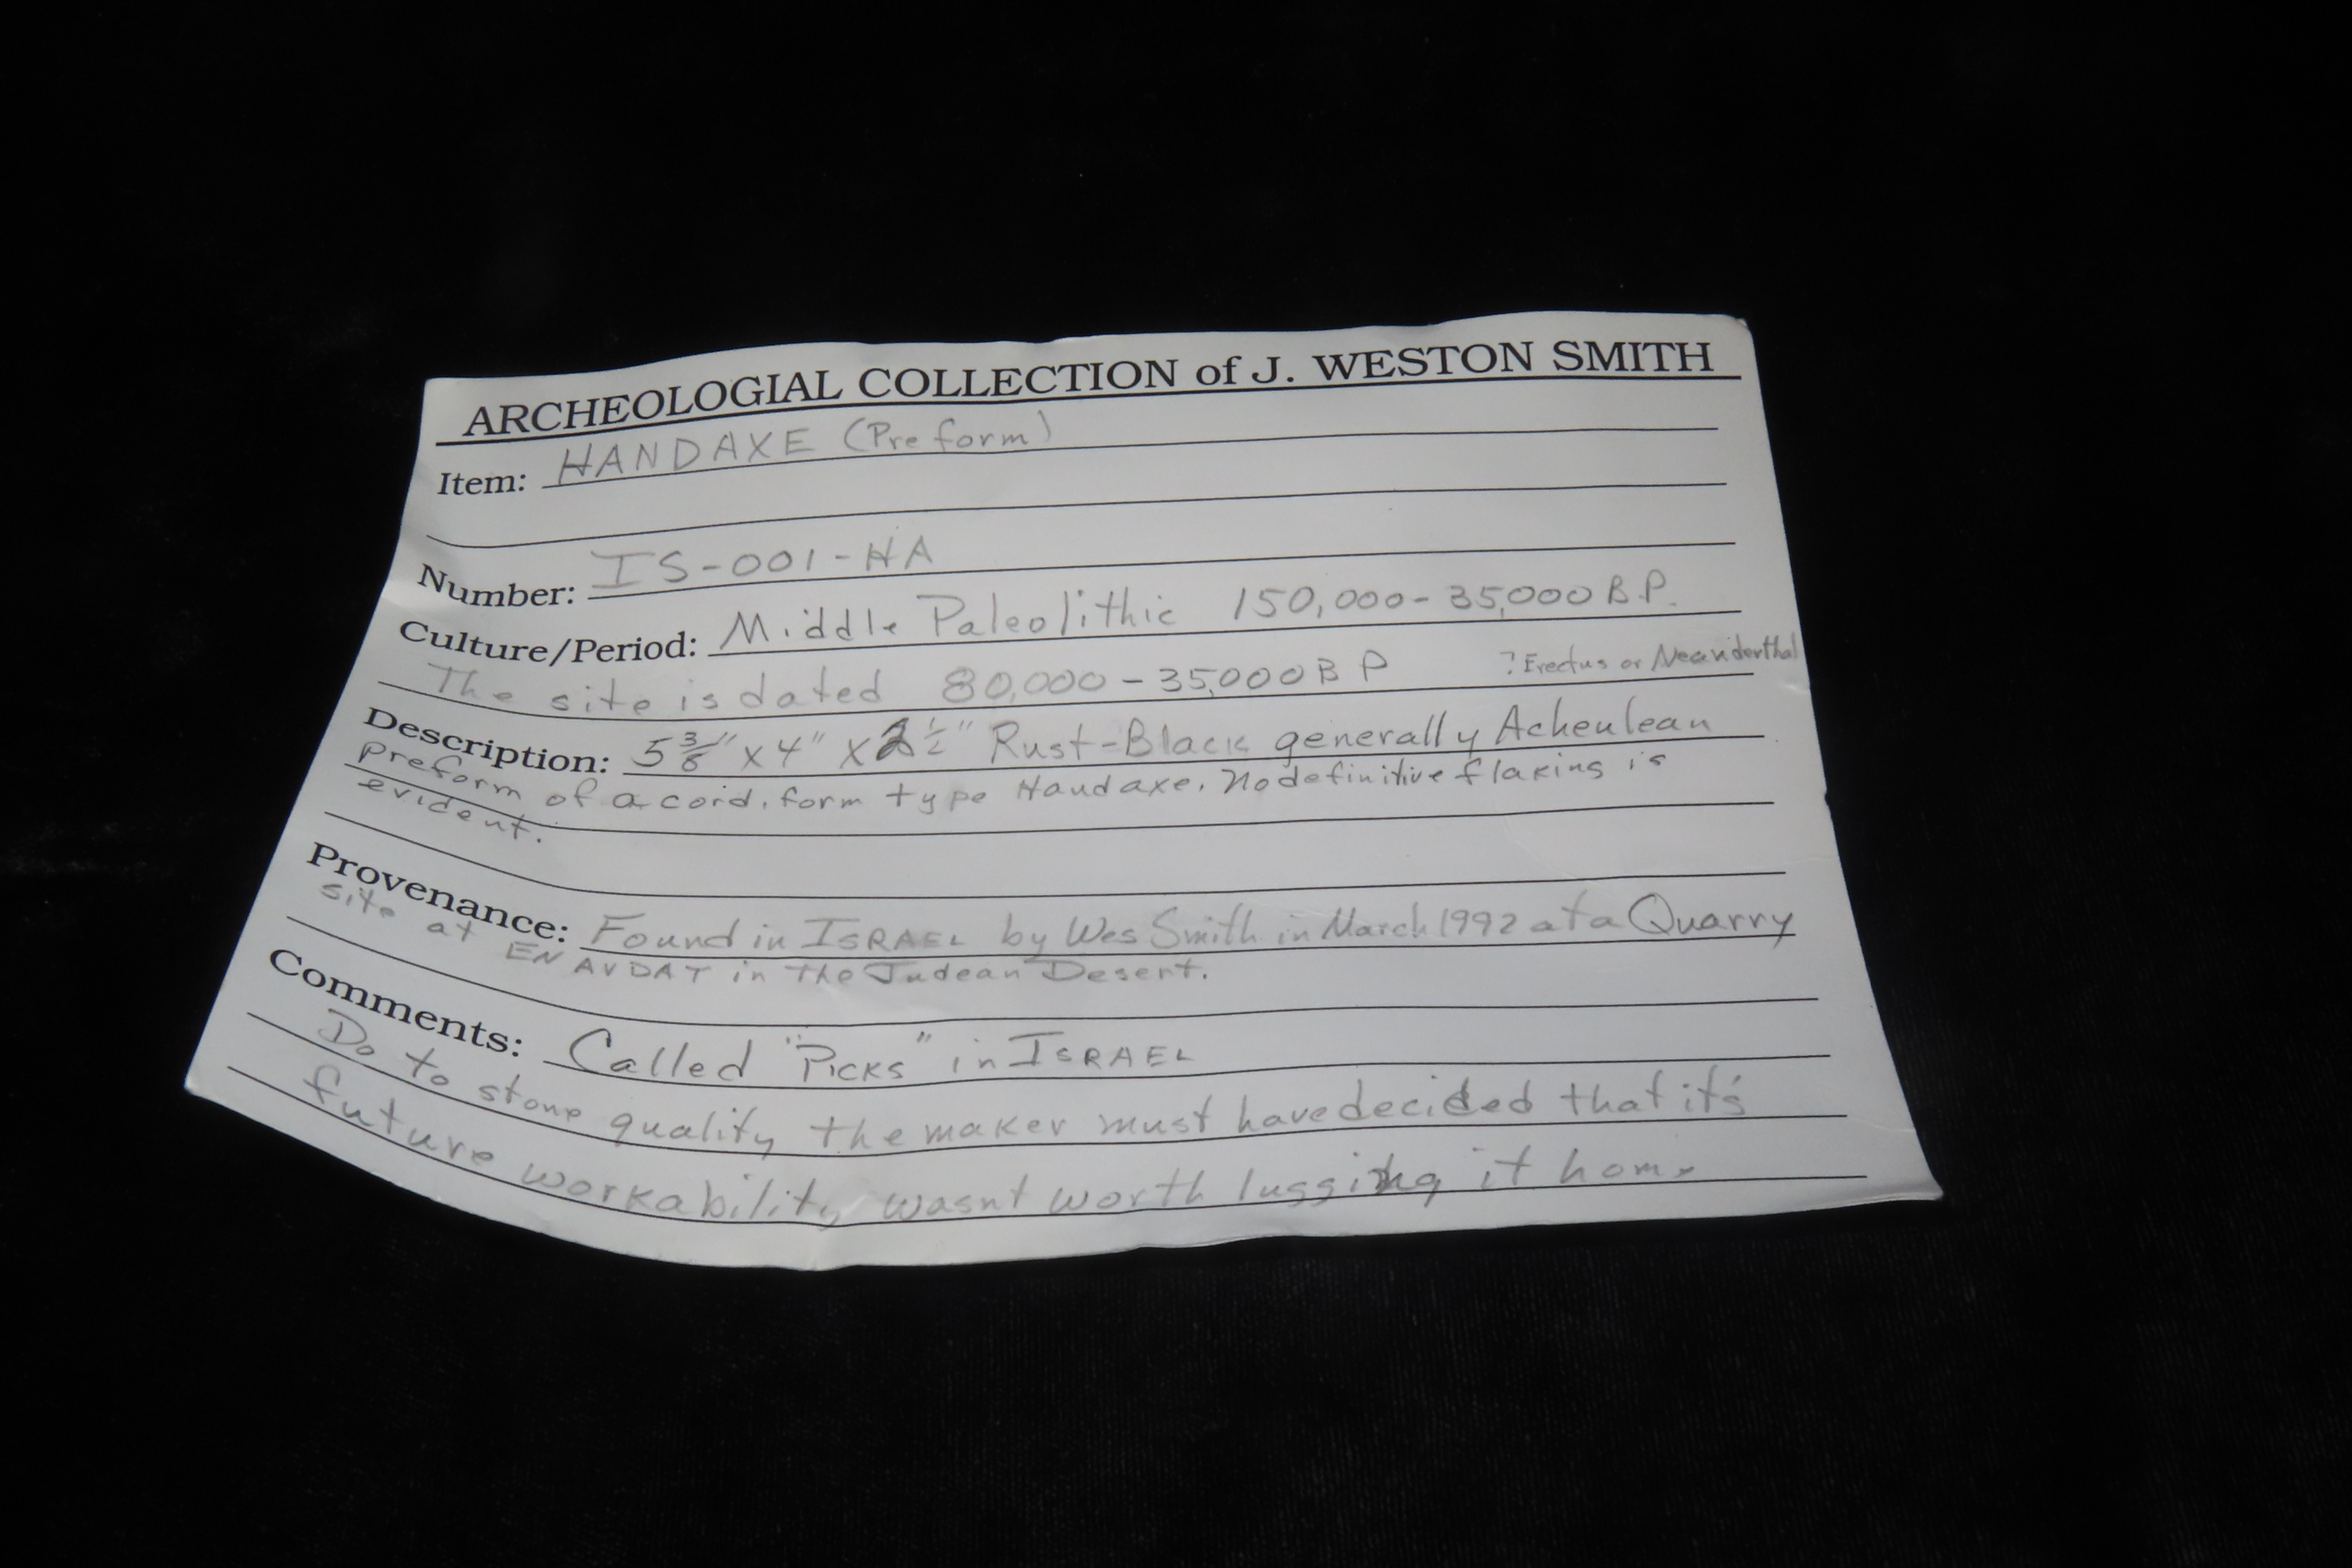 ARCHEOLOGIAL COLLECTION of J. WESTON SMITH
Item: HANDAXE (Preform)
Number: IS-001-HA
Culture/Period: Middle Paleolithic 150,000-35,000 B.P.
The site is dated 80,000-35,000 B P ? Erectus or Neanderthal
Description: 5 3/8" x 4" x 2 1/2" Rust-Black generally Acheulean
preform of a cordiform type Handaxe. No definitive flaking is
evident.
Provenance: Found in ISRAEL by Wes Smith in March 1992 at a Quarry
site at EN AVDAT in the Judean Desert.
Comments: Called "PICKS" in ISRAEL
Do to stone quality the maker must have decided that it's
future workability wasnt worth lugging it home